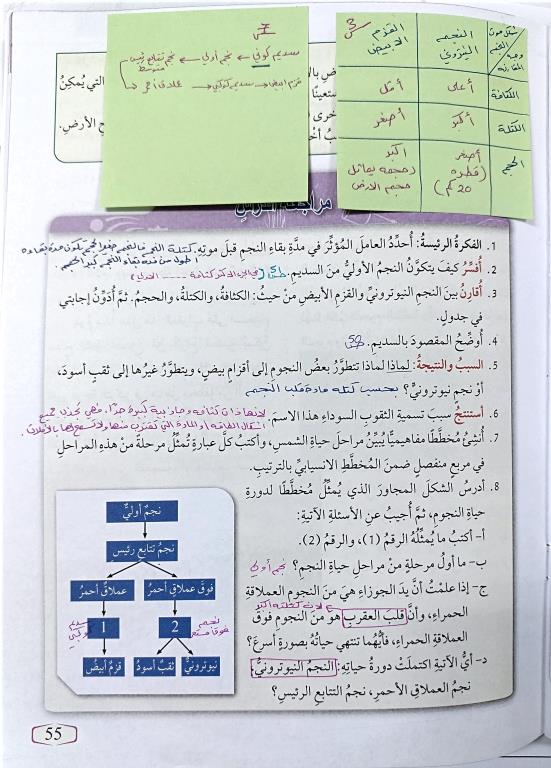 س7
سديم كوني ← نجم أولي ← نجم تتابع رئيس متوسط
قزم أبيض ← سديم كوكبي ← عملاق أحمر
س3
شكل موت النجم
وجه المقارنة
النجم النيتروني
القزم الأبيض
الكثافة
أعلى
أقل
الكتلة
أكبر
أصغر
الحجم
أصغر (قطره 20 كم)
أكبر (حجمه يماثل حجم الأرض
مراجعة الدرس
1. الفكرة الرئيسة: أُحدِّدُ العاملَ المُؤثِّرَ في مدَّةِ بقاءِ النجمِ قبلَ موتِهِ. كتلة النجم
2. أُفسِّرُ كيفَ يتكوَّنُ النجمُ الأوليُّ منَ السديمِ.
3. أُقارِنُ بينَ النجمِ النيوترونيِّ والقزمِ الأبيضِ منْ حيثُ: الكثافةُ، والكتلةُ، والحجمُ. ثمَّ أُدَوِّنُ إجابتي
في جدولٍ.
4. أُوضِّحُ المقصودَ بالسديمِ. ص58
5. السببُ والنتيجةُ: لماذا لماذا تتطوَّرُ بعضُ النجومِ إلى أقزامٍ بيضٍ، ويتطوَّرُ غيرُها إلى ثقبٍ أسودَ،
أوْ نجمٍ نيوترونيٍّ؟ بحسب كتلة مادة قلب النجم
6. أستنتجُ سببَ تسميةِ الثقوبِ السوداءِ هذا الاسمَ. لأنها ذات كثافة وجاذبية كبيرة جدًا. فهي تجذب جميع
أشكال الطاقة أو المادة التي تقترب منها ولا تسمح لها بالإفلات
7. أُنشِئُ مُخطَّطًا مفاهيميًّا يُبيِّنُ مراحلَ حياةِ الشمسِ، وأكتبُ كلَّ عبارةٍ تُمثِّلُ مرحلةً منْ هذهِ المراحلِ
في مربعٍ منفصلٍ ضمنَ المُخطَّطِ الانسيابيِّ بالترتيبِ.
8. أدرسُ الشكلَ المجاورَ الذي يُمثِّلُ مُخطَّطًا لدورةِ
حياةِ النجومِ، ثمَّ أُجيبُ عنِ الأسئلةِ الآتيةِ:
أ- أكتبُ ما يُمثِّلُهُ الرقمُ (1)، والرقمُ (2).
ب- ما أولُ مرحلةٍ منْ مراحلِ حياةِ النجمِ؟ نجم أولي
ج- إذا علمْتُ أنَّ يدَ الجوزاءِ هيَ منَ النجومِ العملاقةِ
لأن كتلته أكبر
الحمراءِ، وأنَّ قلبَ العقربِ هوَ منَ النجومِ فوقَ
العملاقةِ الحمراءِ، فأيُّهما تنتهي حياتُهُ بصورةٍ أسرعَ؟
د- أيُّ الآتيةِ اكتملَتْ دورةُ حياتِهِ: النجمُ النيوترونيُّ،
نجمُ العملاقِ الأحمرِ، نجمُ التتابعِ الرئيسِ؟
نجمٌ أوليٌّ
نجمُ تتابعٍ رئيسٍ
فوقَ عملاقٍ أحمرَ
عملاقٌ أحمرُ
سديم كوكبي
1
2
قزمٌ أبيضُ
ثقبٌ أسودُ
نيوترونيٌّ
55